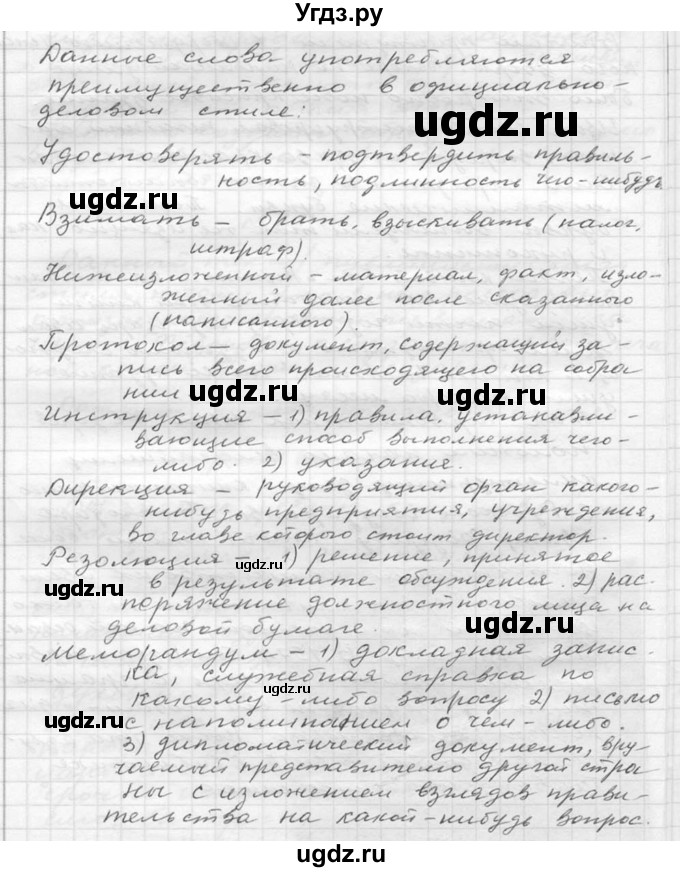 Угдз.ру
Данные слова употребляются
преимущественно в официально-
деловом стиле:
ugdz.ru
Удостоверять - подтвердить правиль-
ность, подлинность чего-нибудь
ugdz.ru
Взимать - брать, взыскивать (налог,
штраф).
Нижеизложенный - материал, факт, изло-
женный далее после сказанного
(написанного).
Протокол - документ, содержащий за-
пись всего происходящего на собра
нии
ugdz.ru
ugdz.ru
Инструкция - 1) правила, устанавли-
вающие способ выполнения чего-
либо. 2) указание.
Дирекция - руководящий орган какого-
нибудь предприятия, учреждения,
во главе которого стоит директор.
Резолюция - 1) решение, принятое
ugdz.ru
ugdz.ru
в результате обсуждения. 2) рас-
поряжение должностного лица на
деловой бумаге.
ugdz.ru
Меморандум - 1) докладная запис-
ка, служебная справка по
ugdz.ru
какому-либо вопросу 2) письмо
ugdz.ru
с напоминанием о чём-либо.
3) дипломатический документ, вру-
чаемый представителю другой стра
ны с изложением взглядов прави-
тельства на какой-нибудь вопрос.
ugdz.ru